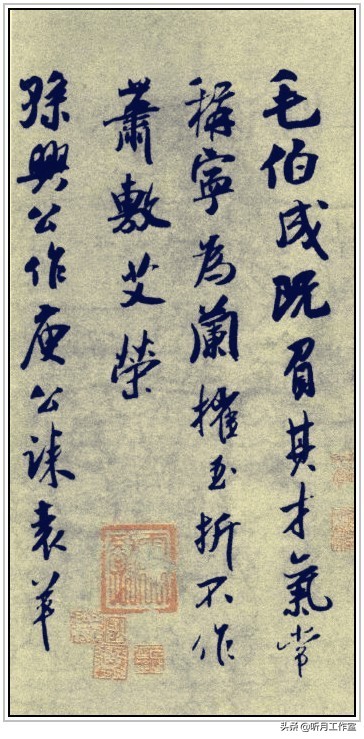 毛伯成既負其才氣常
稱寧為蘭摧玉折不作
蕭敷艾榮
孫興公作庾公誄袁羊
头条 @听月工作室